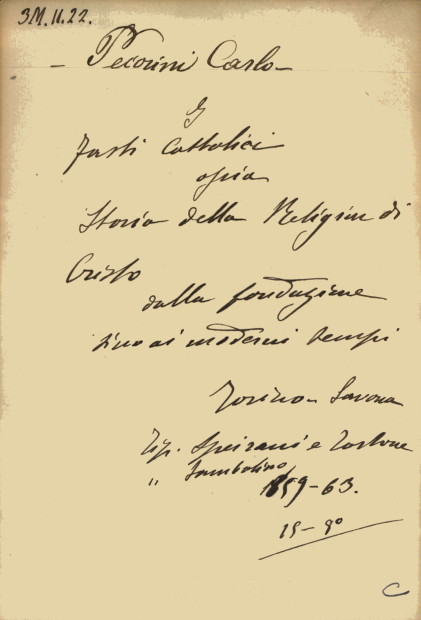 3M.II.22.
- Pecorini Carlo -
I
Fasti Cattolici
ossia
Storia della Religion di
Cristo
dalla fondazione
sino ai moderni tempi
Torino - Savona
Tip. Speirani e Tortone
" Sambolino
1859-63.
15-8º
C